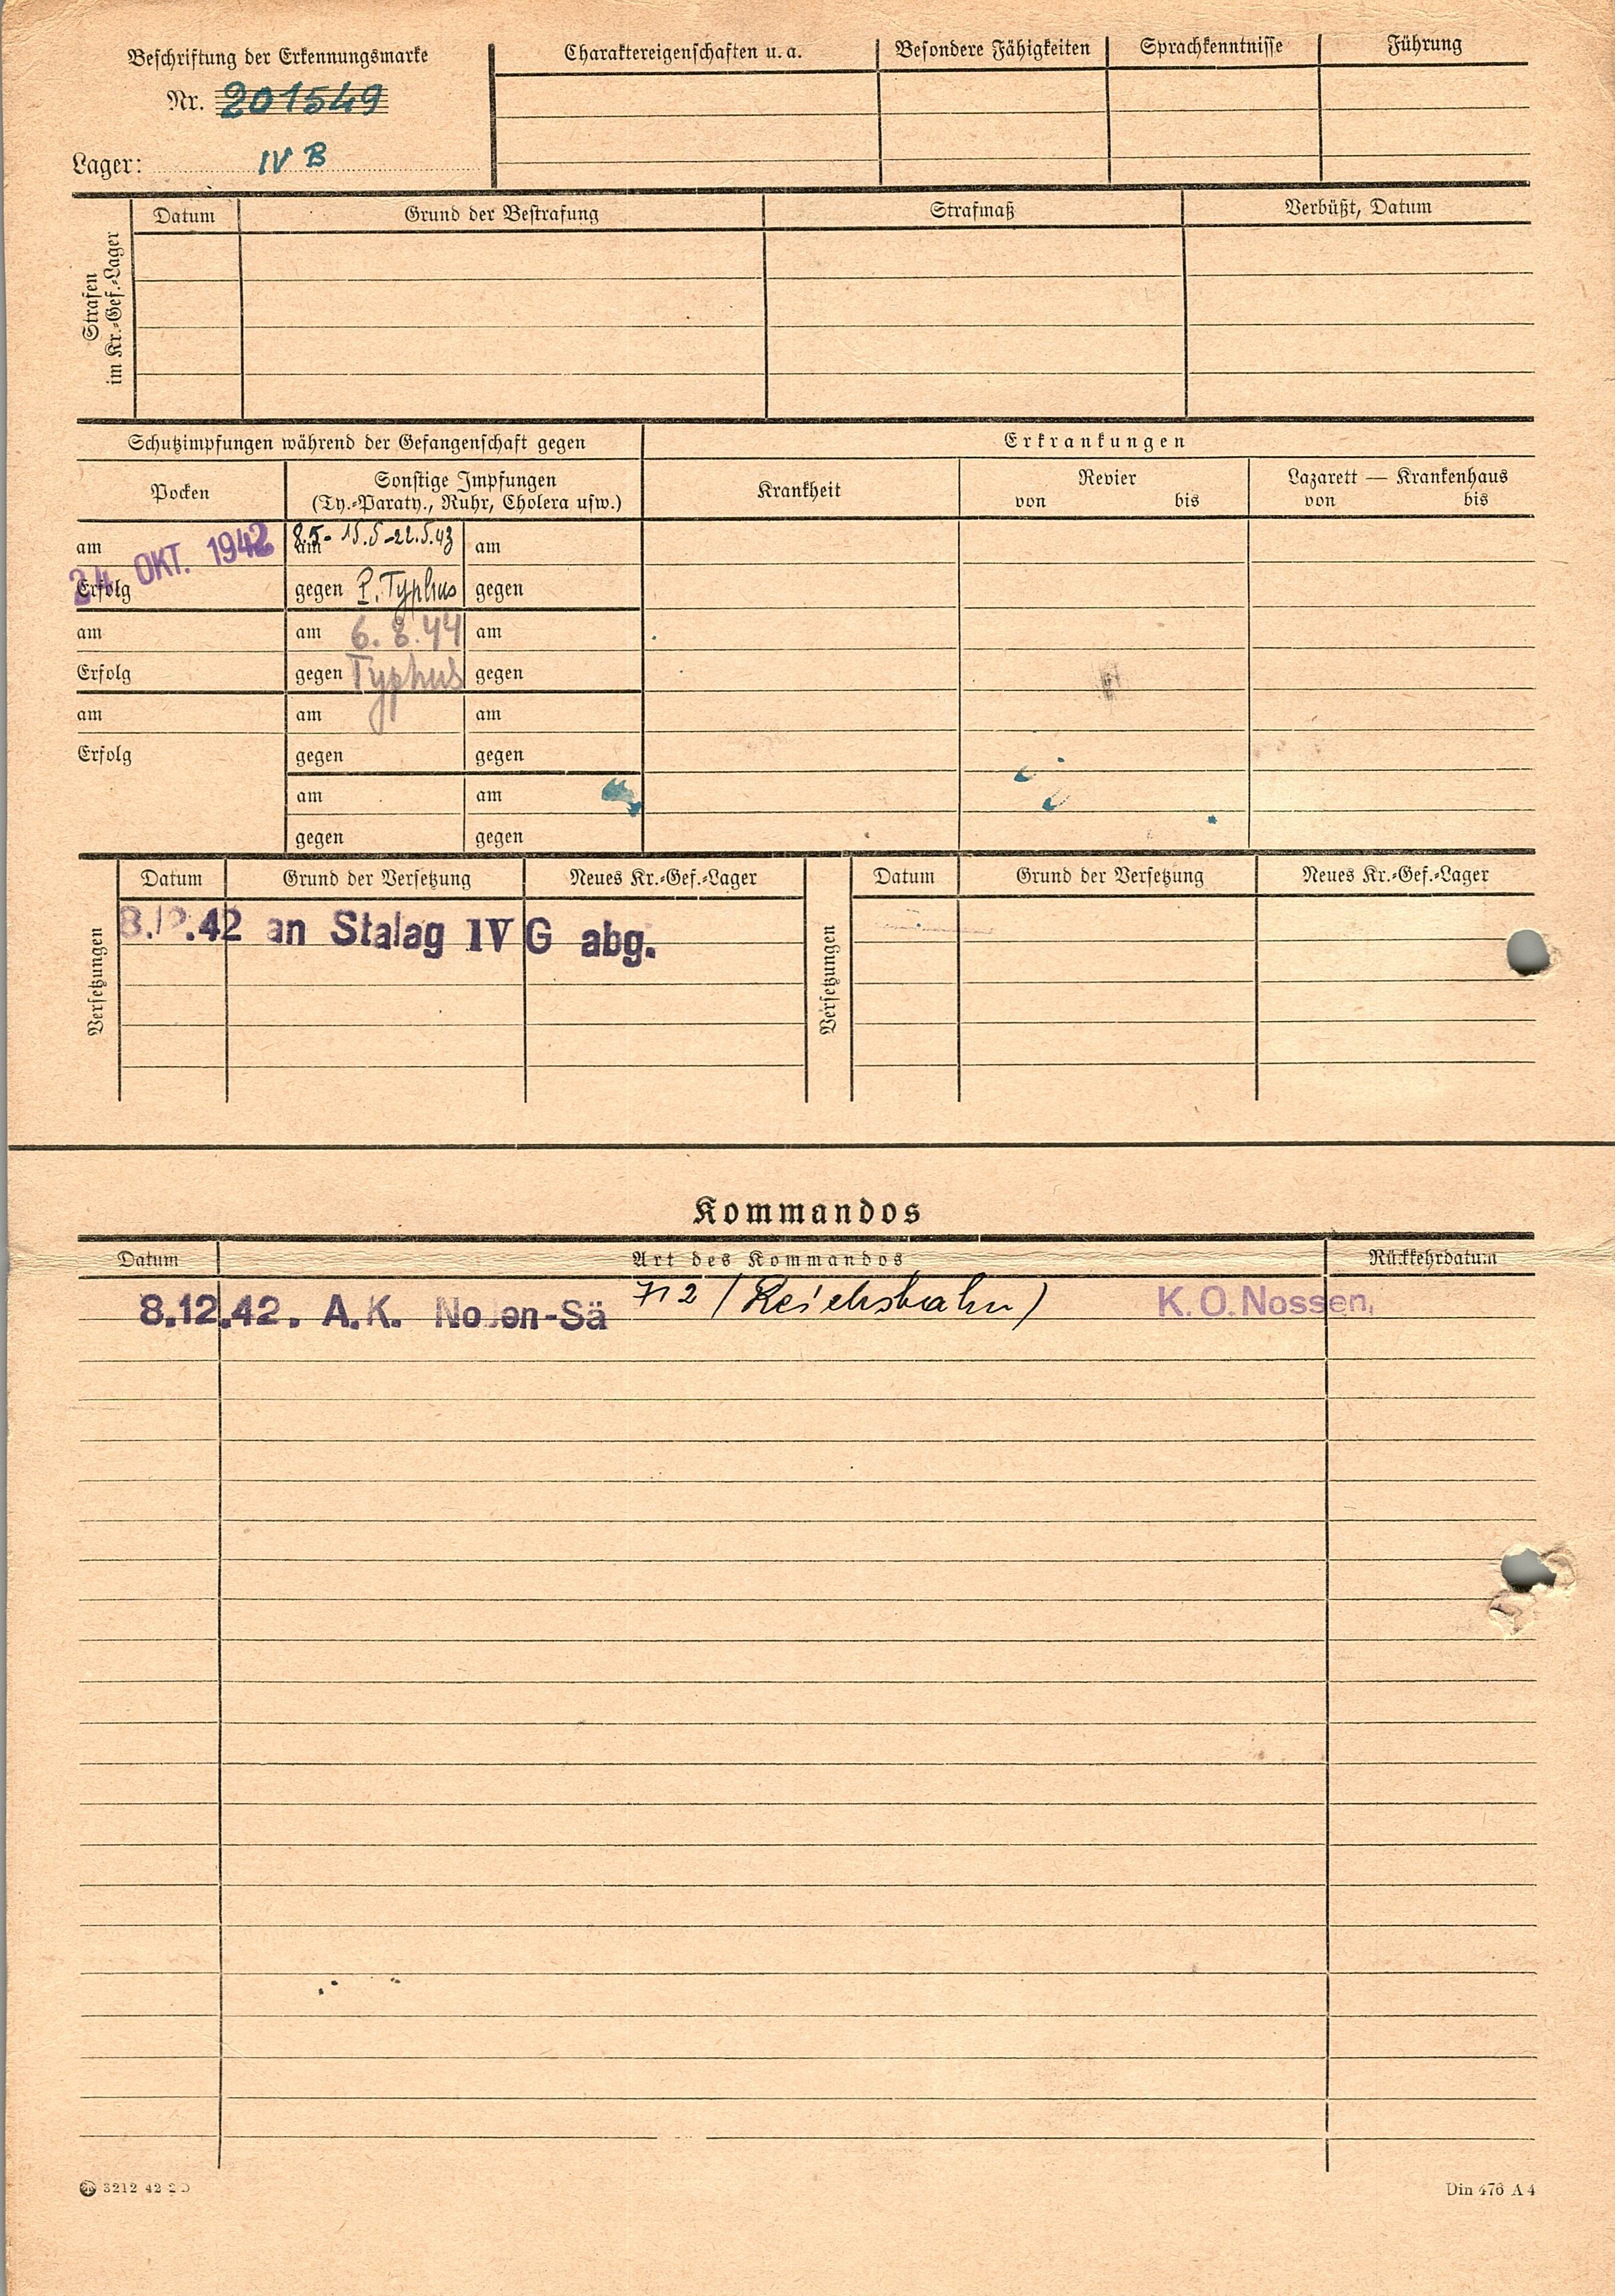 Beschriftung der Erkennungsmarke
Nr. 201549
Lager: IV B
Charaktereigenschaften u. a. Besondere Fähigkeiten Sprachkenntnisse Führung
Strafen
im Kr.-Gef.-Lager
Datum Grund der Bestrafung Strafmaß Verbüßt, Datum
Schutzimpfungen während der Gefangenschaft gegen
Erkrankungen
Pocken
Sonstige Impfungen
(Ty.-Paraty., Ruhr, Cholera usw.)
Krankheit
Revier
von bis
Lazarett — Krankenhaus
von bis
am 24 OKT. 1942 am 8.5- 15.5-22.5.43 am
Erfolg gegen P. Typhus gegen
am am 6. 8. 44 am
Erfolg gegen Typhus gegen
am am am
Erfolg gegen gegen
am am
gegen gegen
Versetzungen
Datum Grund der Versetzung Neues Kr.-Gef.-Lager
8.12.42 an Stalag IV G abg.
Versetzungen
Datum Grund der Versetzung Neues Kr.-Gef.-Lager
Kommandos
Datum Art des Kommandos Rückkehrdatum
8.12.42. A.K. Nossen-Sä 712 (Reichsbahn) K.O. Nossen,
3212 42 2 D
Din 476 A 4